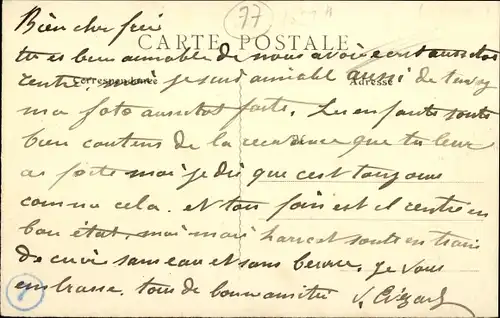 77
Bien cher frei
CARTE POSTALE
tu es bien aimable de nous avoir ecrit aussitot
rentré, moi je suis aimable aussi de
Correspondance
Adresse
ma foto aussitot faite. Les enfants sont
bien contens de la que tu leur
as faite moi je dis que c'est toujours
comme cela. et ton foin est il rentré en
bon état, moi mais haricot sont en train
de cuire sans eau et sans beurre. Je vous
embrasse. tous de bonne amitié